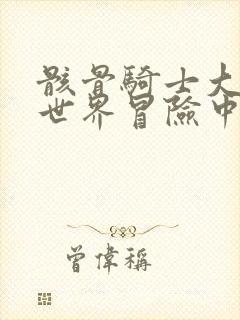 骸骨騎士大
世界冒險中
曾偉稱